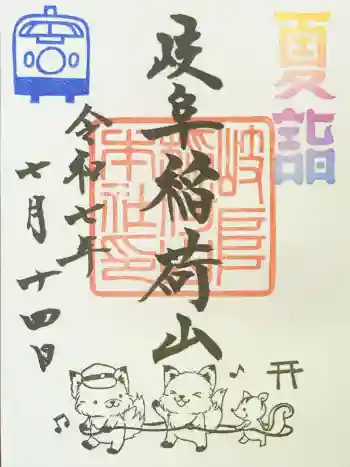 夏詣
岐阜稲荷山
岐阜稲荷山本社印
令和七年
七月十四日